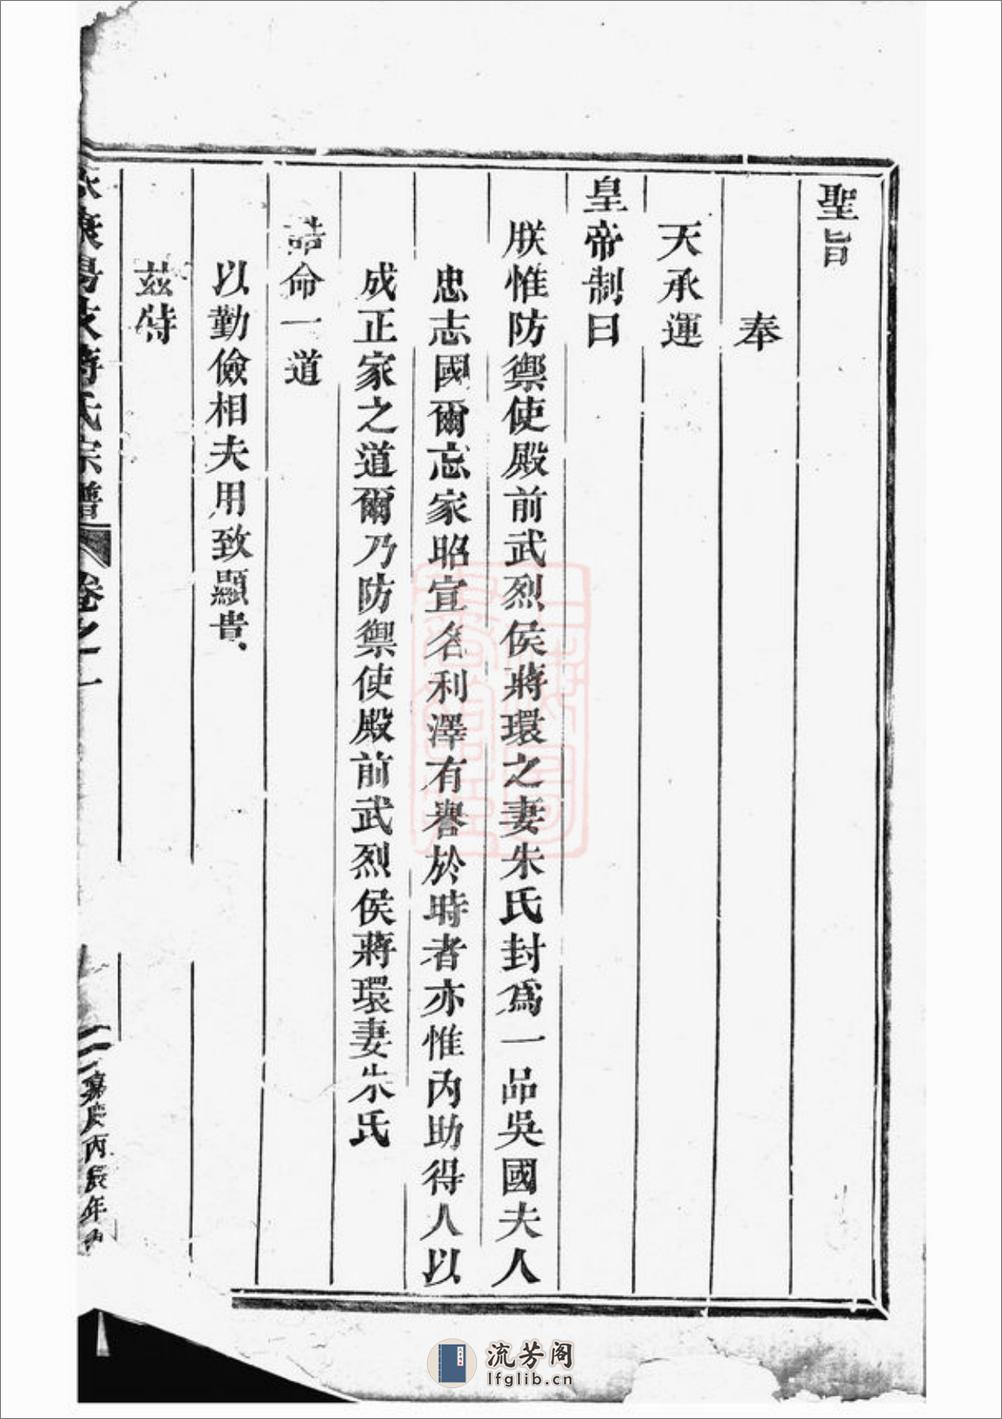 聖旨
奉
天承運
皇帝制曰
朕惟防禦使殿前武烈侯蔣環之妻朱氏封為一品吳國夫人
忠志國爾忘家昭宣名利澤有譽於時者亦惟內助得人以
成正家之道爾乃防禦使殿前武烈侯蔣環妻朱氏
誥命一道
以勤儉相夫用致顯貴、
茲特
蔣氏宗譜
卷之一
二
嘉慶丙辰年
流芳阁
lfglib.cn